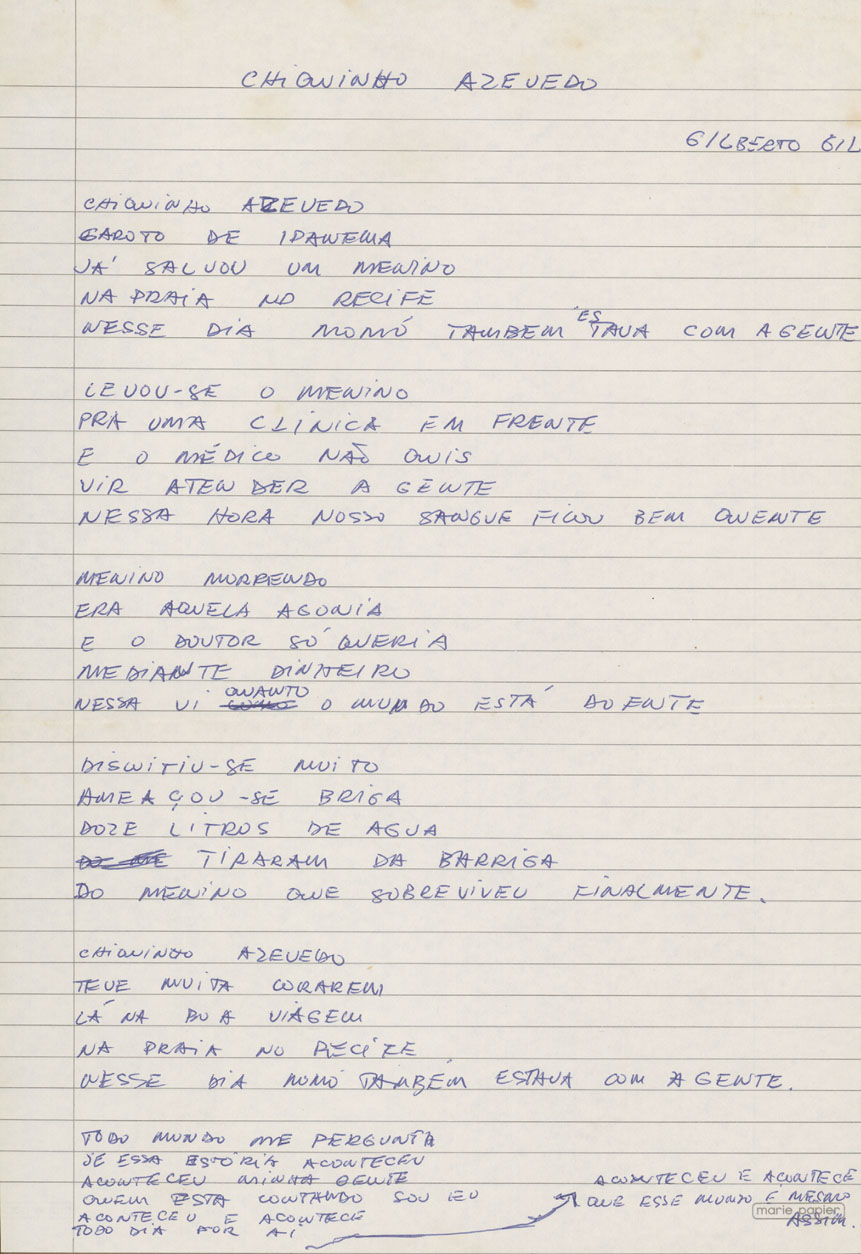 CHIQUINHO AZEVEDO
GILBERTO GIL
CHIQUINHO AZEVEDO
GAROTO DE IPANEMA
JÁ SALVOU UM MENINO
NA PRAIA NO RECIFE
NESSE DIA MOMÓ TAMBEM ESTAVA COM A GENTE
LEVOU-SE O MENINO
PRA UMA CLÍNICA EM FRENTE
E O MÉDICO NÃO QUIS
VIR ATENDER A GENTE
NESSA HORA NOSSO SANGUE FICOU BEM QUENTE
MENINO MORRENDO
ERA AQUELA AGONIA
E O DOUTOR SÓ QUERIA
MEDIANTE DINHEIRO
NESSA VI QUANTO O MUNDO ESTÁ DOENTE
DISCUTIU-SE MUITO
AMEAÇOU-SE BRIGA
DOZE LITROS DE AGUA
TIRARAM DA BARRIGA
DO MENINO QUE SOBREVIVEU FINALMENTE.
CHIQUINHO AZEVEDO
TEVE MUITA CORAREM
LÁ NA BOA VIAGEM
NA PRAIA NO RECIFE
NESSE DIA MOMÓ TAMBÉM ESTAVA COM A GENTE.
TODO MUNDO ME PERGUNTA
SE ESSA ESTÓRIA ACONTECEU
ACONTECEU MINHA GENTE
QUEM ESTA CONTANDO SOU EU
ACONTECEU E ACONTECE
TODO DIA POR AÍ
ACONTECEU E ACONTECE
QUE ESSE MUNDO É MESMO
ASSIM.
marie papier